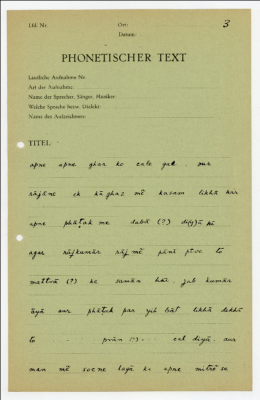 Lfd. Nr.
Ort:
3
Datum:
PHONETISCHER TEXT
Lautliche Aufnahme Nr.
Art der Aufnahme:
Name der Sprecher, Sänger, Musiker
Welche Sprache bezw. Dialekt:
Name des Aufzeichners:
TITEL:
apne apne ghar ko cale gae. aur
rājāne ek kāghaz mẽ kasam likhā kar
apne phāṭak me dabā (?) diyā ki
agar rājkumār rāj mẽ pānī pīve to
(?) ke samān hai. jab kumār
āyā aur phāṭak par yih bāt likhā dekhā
to (?) cal diyā. aur
man mẽ socne lagā ki apne mitrõ se